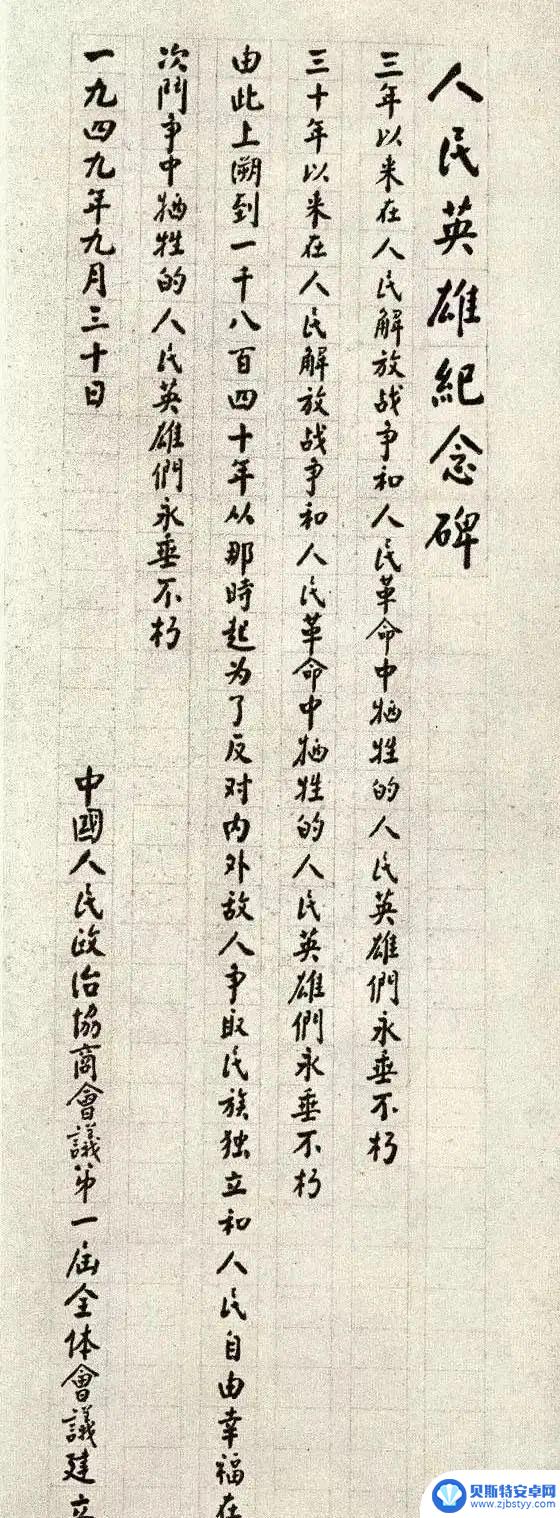 人民英雄紀念碑
三年以来在人民解放战争和人民革命中牺牲的人民英雄們永垂不朽
三十年以来在人民解放战争和人民革命中牺牲的人民英雄們永垂不朽
由此上溯到一千八百四十年从那時起为了反对内外敌人争取民族独立和人民自由幸福在
次鬥争中牺牲的人民英雄們永垂不朽
一九四九年九月三十日
中國人民政治協商會議第一届全体會議建立
贝斯特安卓网
www.zjbstyy.com